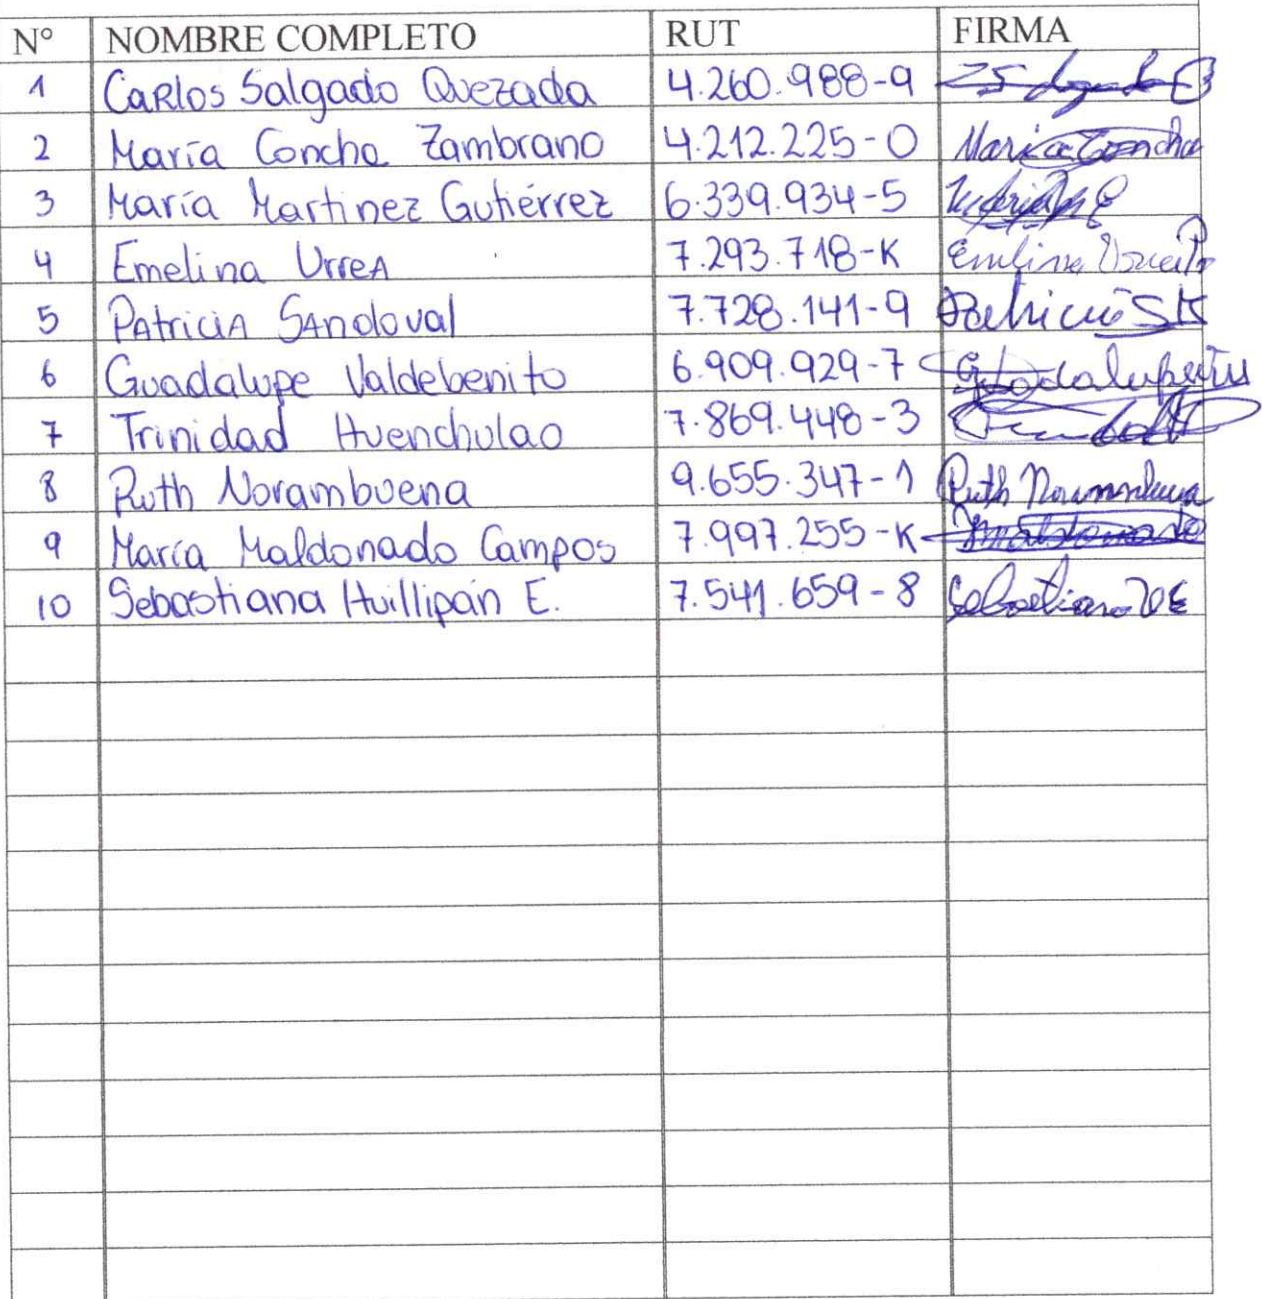 N° NOMBRE COMPLETO RUT FIRMA
1 Carlos Salgado Quezada 4.260.988-9
2 María Concha Zambrano 4.212.225-0 Maria Concha
3 María Martinez Gutiérrez 6.339.934-5
4 Emelina Urrea 7.293.718-K
5 Patricia Sandoval 7.728.141-9
6 Guadalupe Valdebenito 6.909.929-7
7 Trinidad Huenchulao 7.869.448-3
8 Ruth Norambuena 9.655.347-1 Ruth
9 María Maldonado Campos 7.997.255-K
10 Sebastiana Huillipán E. 7.541.659-8